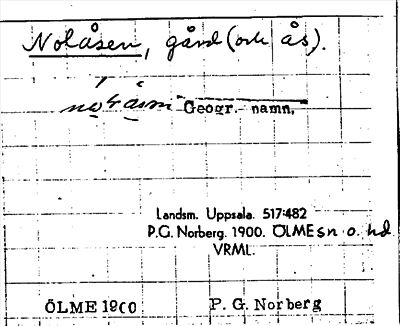 Nolåsen, gård (och ås).
Geogr. namn.
Landsm. Uppsala. 517:482
P.G. Norberg. 1900. ÖLME sn o. hd
VRML.
ÖLME 1900 P. G. Norberg